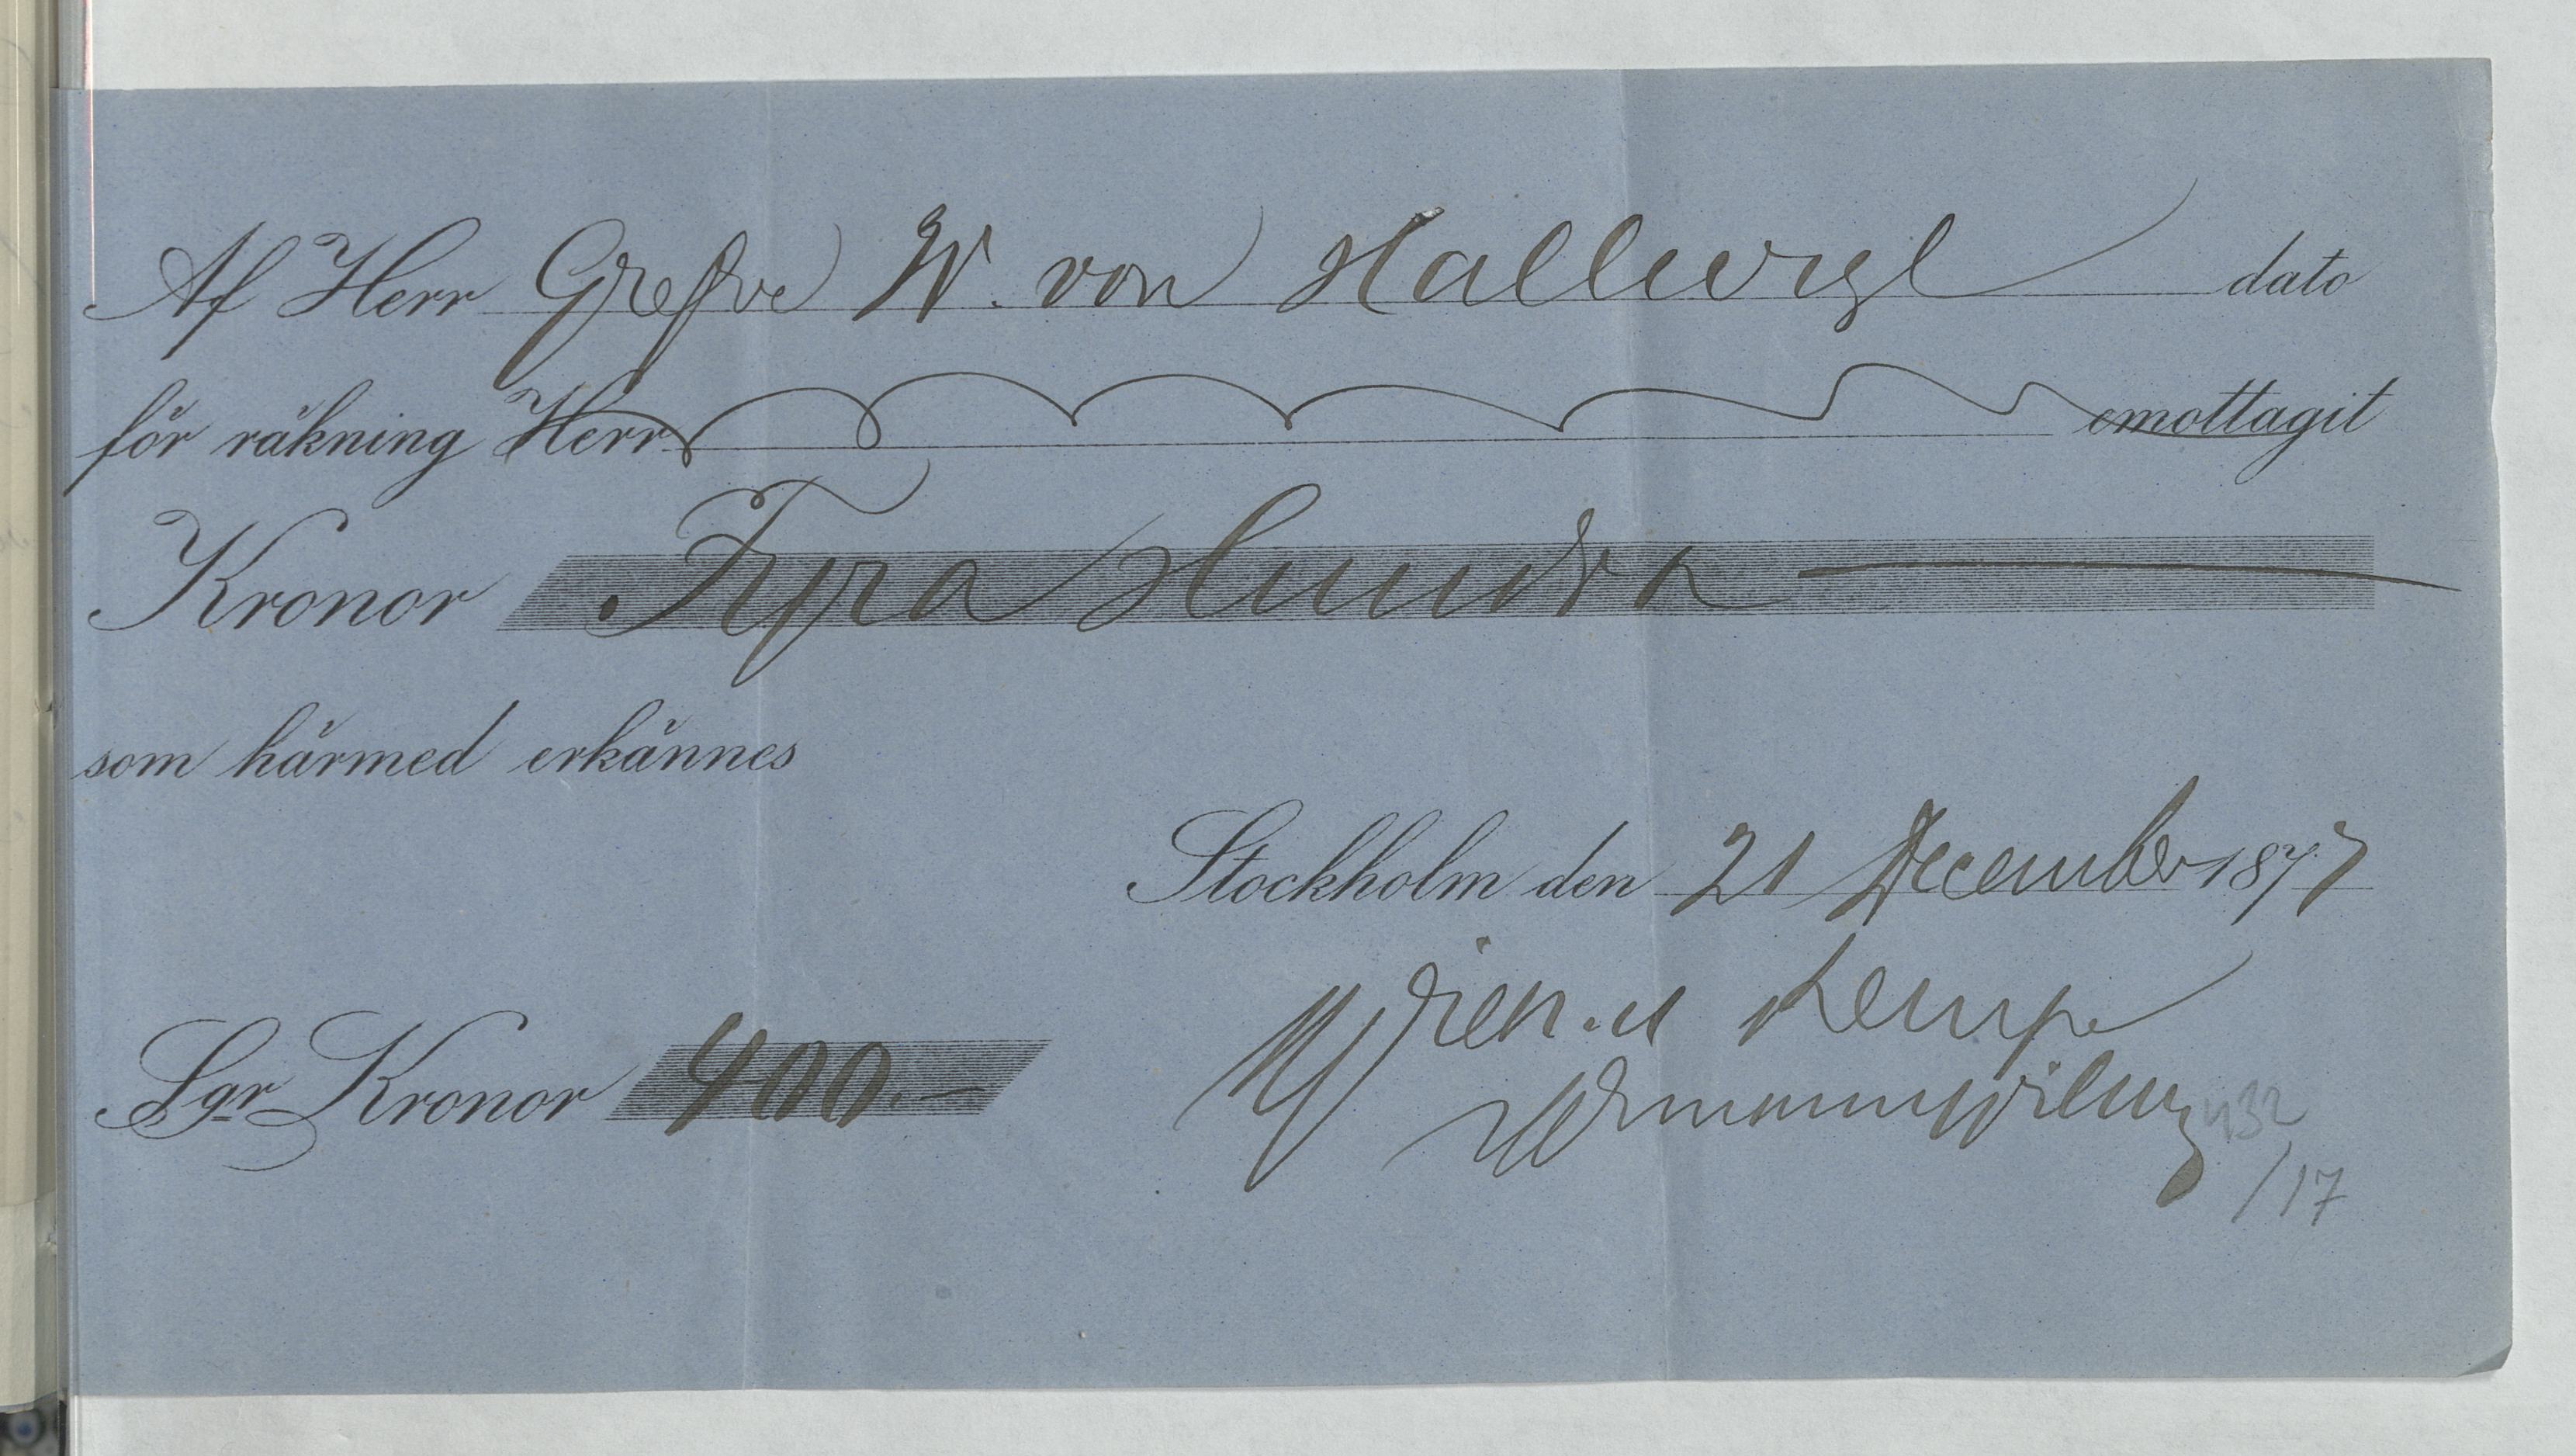 Af Herr Grefve W. von Hallwyl dato
för räkning Herr emottagit
Kronor Fyra Hundra
som härmed erkännes
Stockholm den 21 December 1877
Kempe
Sgr Kronor 400.—
432
/17